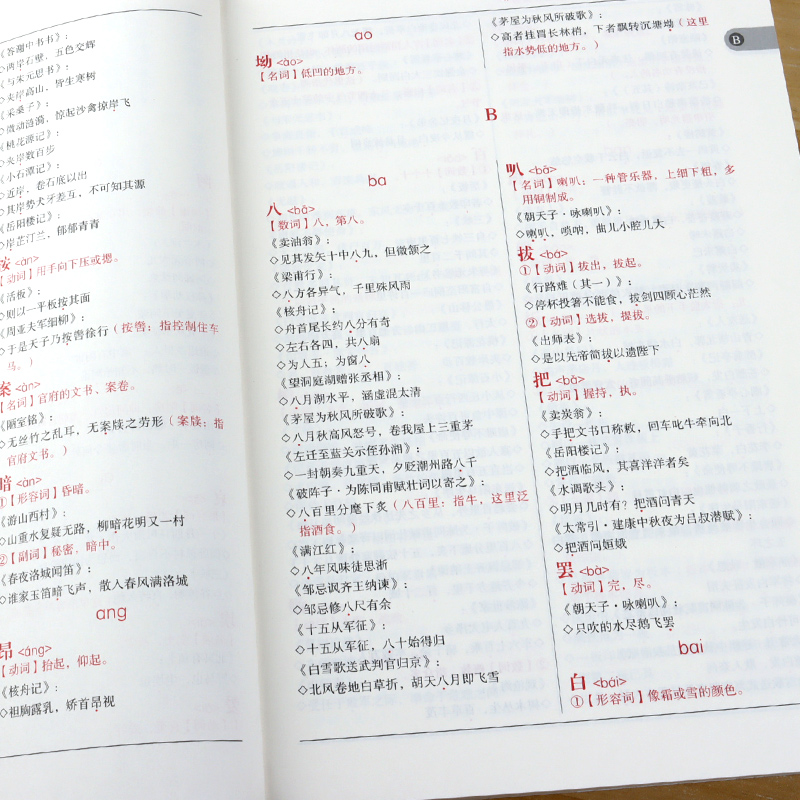 《答谢中书书》：
◇两岸石壁，五色交辉
《与朱元思书》：
◇夹岸高山，皆生寒树
《采桑子》：
◇微动涟漪，惊起沙禽掠岸飞
《桃花源记》：
◇夹岸数百步
《小石潭记》：
◇近岸，卷石底以出
◇其岸势犬牙差互，不可知其源
《岳阳楼记》：
◇岸芷汀兰，郁郁青青
按 <àn>
【动词】用手向下压或摁。
《活板》：
◇则以一平板按其面
《周亚夫军细柳》：
◇于是天子乃按辔徐行（按辔：指控制住车
马。）
案 <àn>
【名词】官府的文书、案卷。
《陋室铭》：
◇无丝竹之乱耳，无案牍之劳形（案牍：指
官府文书。）
暗 <àn>
①【形容词】昏暗。
《游山西村》：
◇山重水复疑无路，柳暗花明又一村
②【副词】秘密，暗中。
《春夜洛城闻笛》：
◇谁家玉笛暗飞声，散入春风满洛城
ang
昂 <áng>
【动词】抬起，仰起。
《核舟记》：
◇袒胸露乳，矫首昂视
ao
坳 <ào>
【名词】低凹的地方。
《茅屋为秋风所破歌》：
◇高者挂罥长林梢，下者飘转沉塘坳（这里
指水势低的地方。）
B
B
ba
八 <bā>
【数词】八，第八。
《卖油翁》：
◇见其发矢十中八九，但微颔之
《梁甫行》：
◇八方各异气，千里殊风雨
《核舟记》：
◇舟首尾长约八分有奇
◇左右各四，共八扇
◇为人五；为窗八
《望洞庭湖赠张丞相》：
◇八月湖水平，涵虚混太清
《茅屋为秋风所破歌》：
◇八月秋高风怒号，卷我屋上三重茅
《左迁至蓝关示侄孙湘》：
◇一封朝奏九重天，夕贬潮州路八千
《破阵子·为陈同甫赋壮词以寄之》：
◇八百里分麾下炙（八百里：指牛，这里泛
指酒食。）
《满江红》：
◇八年风味徒思浙
《邹忌讽齐王纳谏》：
◇邹忌修八尺有余
《十五从军征》：
◇十五从军征，八十始得归
《白雪歌送武判官归京》：
◇北风卷地白草折，胡天八月即飞雪
叭 <bā>
【名词】喇叭：一种管乐器，上细下粗，多
用铜制成。
《朝天子·咏喇叭》：
◇喇叭，唢呐，曲儿小腔儿大
拔 <bá>
①【动词】拔出，拔起。
《行路难（其一）》：
◇停杯投箸不能食，拔剑四顾心茫然
②【动词】选拔，提拔。
《出师表》：
◇是以先帝简拔以遗陛下
把 <bǎ>
【动词】握持，执。
《卖炭翁》：
◇手把文书口称敕，回车叱牛牵向北
《岳阳楼记》：
◇把酒临风，其喜洋洋者矣
《水调歌头》：
◇明月几时有？把酒问青天
《太常引·建康中秋夜为吕叔潜赋》：
◇把酒问姮娥
罢 <bà>
【动词】完，尽。
《朝天子·咏喇叭》：
◇只吹的水尽鹅飞罢
bai
白 <bái>
①【形容词】像霜或雪的颜色。